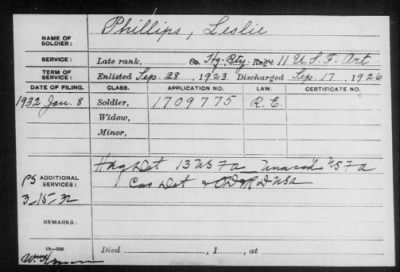 NAME OF SOLDIER: Phillips, Leslie
SERVICE: Late rank, Co. Hq. Bty; Reg't 11 U.S. F. Art.
TERM OF SERVICE: Enlisted Sep. 28, 1923 Discharged Sep. 17, 1926
DATE OF FILING. CLASS. APPLICATION NO. LAW. CERTIFICATE NO.
1932 Jan. 8 Soldier, 1709775 R.E.
Widow,
Minor,
Hdq Det 13 US Fa US Fa
PS ADDITIONAL SERVICES: Cas Det
3-15-32
Died , 1 , at